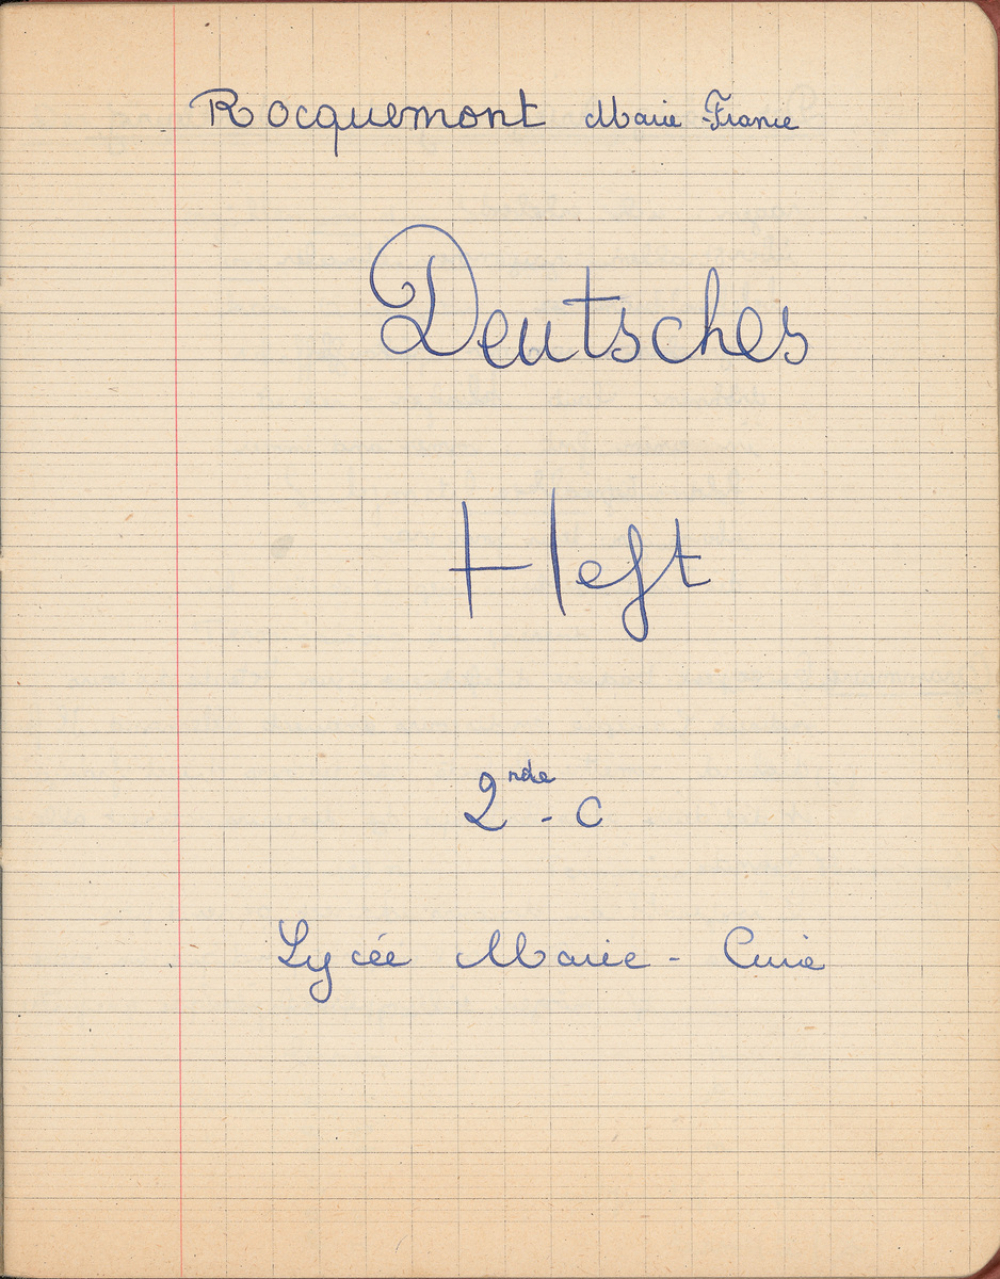 Rocquemont Marie-France
Deutsches
Heft
2nde - C
Lycée Marie - Curie